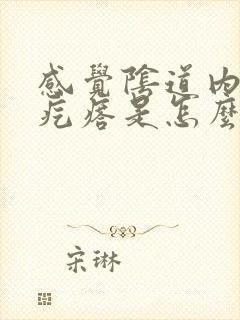 感覺陰道内
疙瘩是怎麼
宋琳